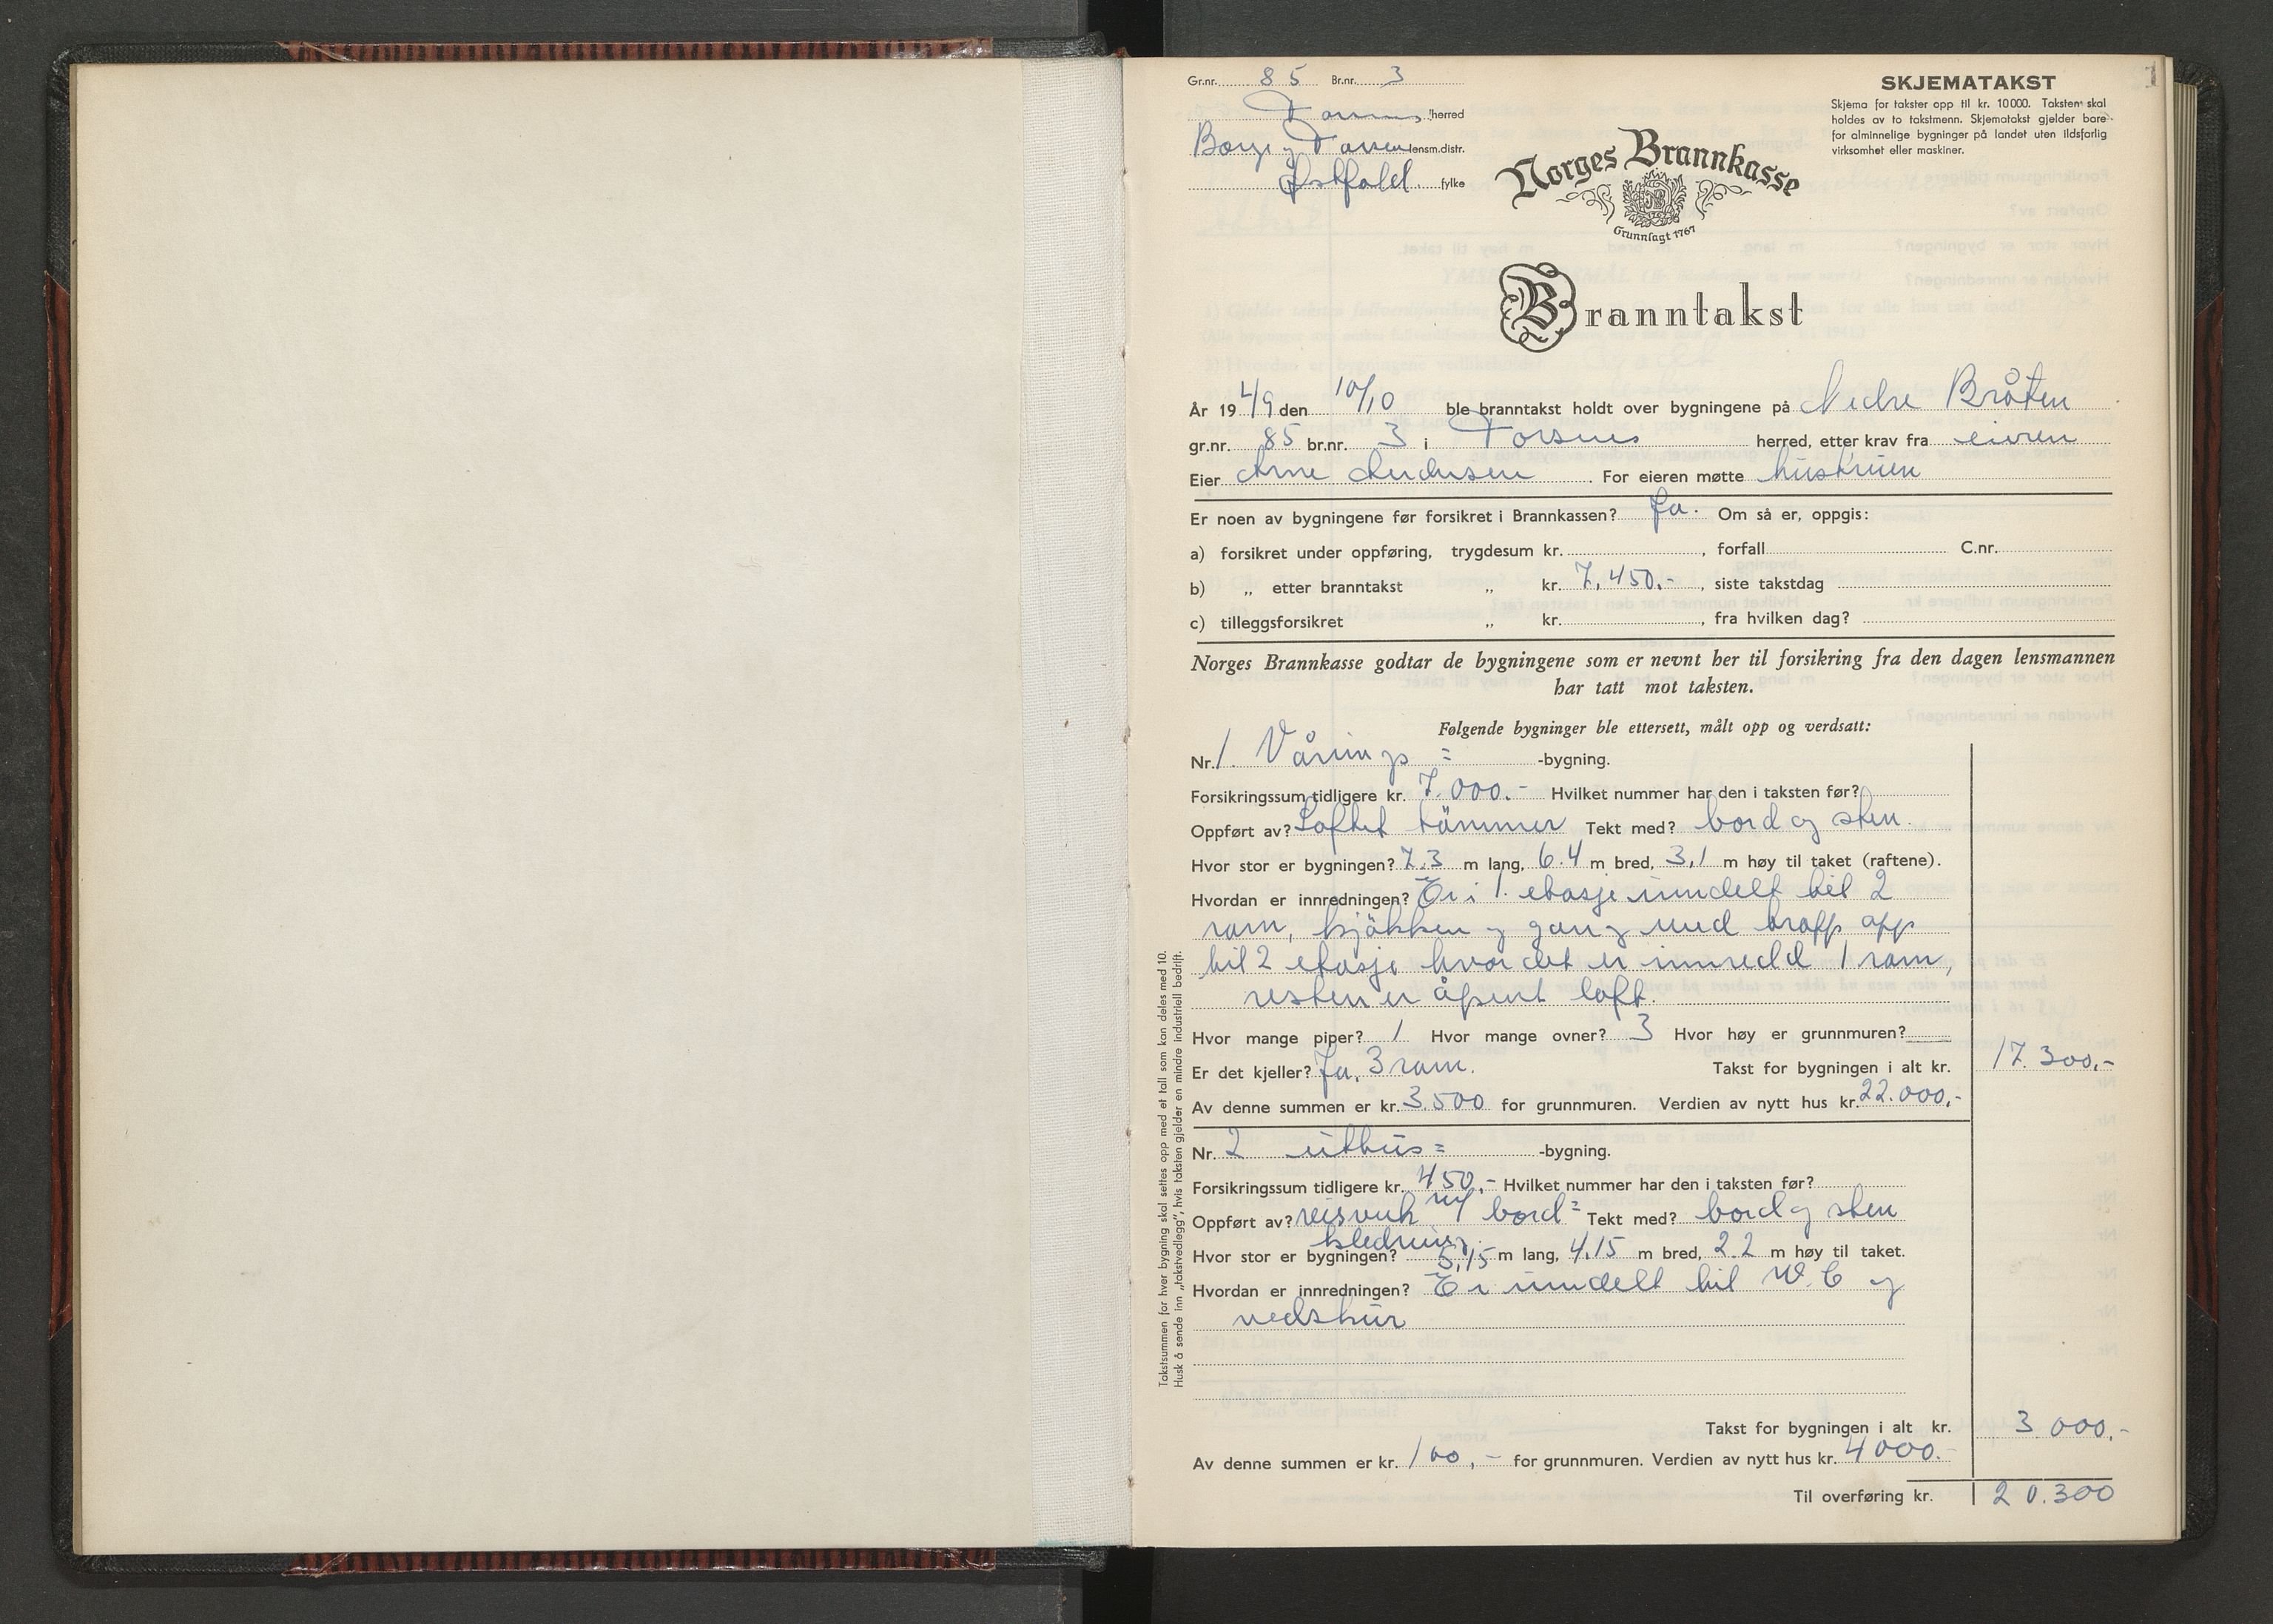 1
Gr.nr. 85 Br.nr. 3
Torsnes herred
Borge og Torsnes lensm.distr.
Østfold fylke
SKJEMATAKST
Skjema for takster opp til kr. 10000. Taksten skal
holdes av to takstmenn. Skjematakst gjelder bare
for alminnelige bygninger på landet uten ildsfarlig
virksomhet eller maskiner.
Norges Brannkasse
Grunnlagt 1767
Branntakst
År 1949 den 10/10 ble branntakst holdt over bygningene på Nedre Bråten
gr.nr. 85 br.nr. 3 i Torsnes herred, etter krav fra eieren
Eier Arne Andersen For eieren møtte hustruen
Er noen av bygningene før forsikret i Brannkassen? Ja. Om så er, oppgis:
a) forsikret under oppføring, trygdesum kr. , forfall C.nr.
b) „ etter branntakst „ kr. 7,450.- , siste takstdag
c) tilleggsforsikret „ kr. , fra hvilken dag?
Norges Brannkasse godtar de bygningene som er nevnt her til forsikring fra den dagen lensmannen
har tatt mot taksten.
Følgende bygninger ble ettersett, målt opp og verdsatt:
Nr. 1. Vånings = -bygning.
Forsikringssum tidligere kr. 7.000.- Hvilket nummer har den i taksten før?
Oppført av? Loftet tömmer Tekt med? bord og sten.
Hvor stor er bygningen? 7.3 m lang, 6.4 m bred, 3,1 m høy til taket (raftene).
Hvordan er innredningen? Er i 1. etasje inndelt til 2
rom, kjökken og gang med trapp opp
til 2 etasje hvor det er innredd 1 rom,
resten er åpent loft.
Hvor mange piper? 1 Hvor mange ovner? 3 Hvor høy er grunnmuren?
Er det kjeller? Ja, 3 rom. Takst for bygningen i alt kr. 17.300,-
Av denne summen er kr. 3.500 for grunnmuren. Verdien av nytt hus kr. 22.000,-
Nr. 2 uthus = -bygning.
Forsikringssum tidligere kr. 450,- Hvilket nummer har den i taksten før?
Oppført av? reisverk m/ bord= Tekt med? bord og sten
kledning.
Hvor stor er bygningen? 5,15 m lang, 4,15 m bred, 2.2 m høy til taket.
Hvordan er innredningen? Er inndelt til W.C og
vedskur
Takst for bygningen i alt kr. 3.000,-
Av denne summen er kr. 100,- for grunnmuren. Verdien av nytt hus kr. 4000.-
Til overføring kr. 20.300
Takstsummen for hver bygning skal settes opp med et tall som kan deles med 10.
Husk å sende inn „takstvedlegg", hvis taksten gjelder en mindre industriell bedrift.